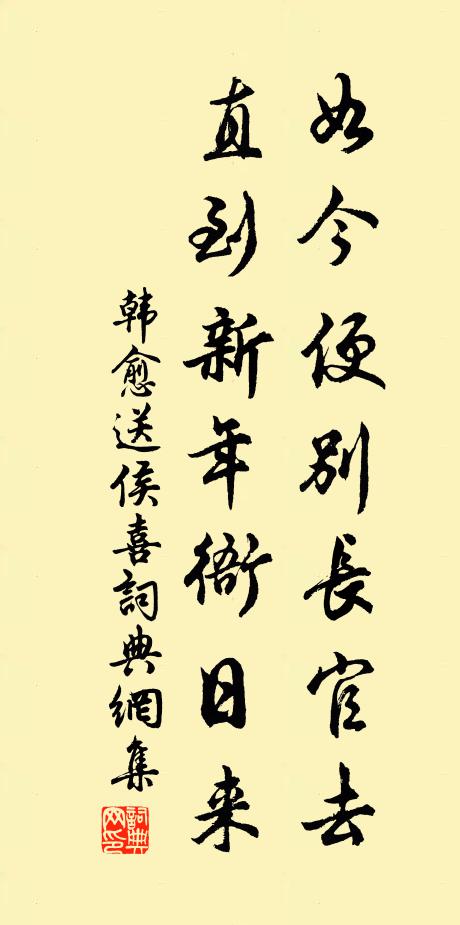 如今便别長官去
直到新年衙日来
韩愈送侯喜詞典網集
詞典网印